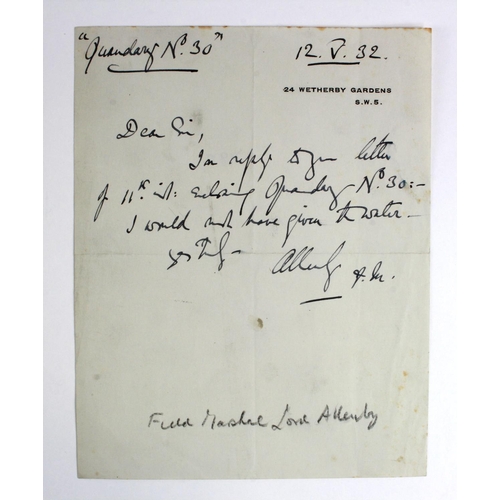 "Quandary No. 30"
12. V. 32.
24 WETHERBY GARDENS
S.W.5.
Dear Sir,
In reply to your letter
of 11th inst: enclosing Quandary No. 30:-
I would not have given the water -
yrs truly -
Allenby
F.M.
Field Marshal Lord Allenby